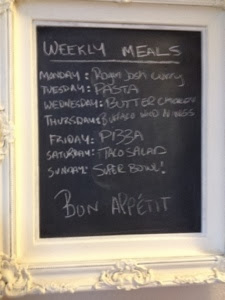 WEEKLY MEALS
MONDAY: Rogan Josh Curry
TUESDAY: PASTA
WEDNESDAY: BUTTER CHICKEN
THURSDAY: BUFFALO WINGS
FRIDAY: PIZZA
SATURDAY: TACO SALAD
SUNDAY: SUPER BOWL!
BON APPÉTIT